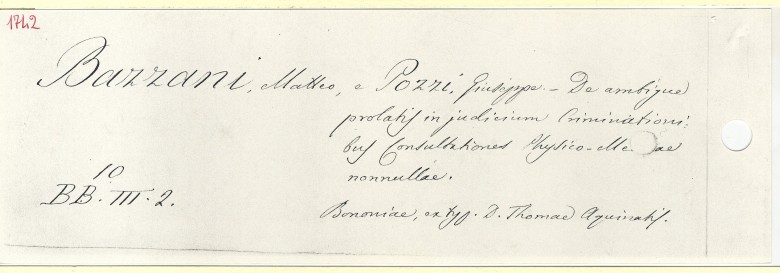 1742
Bazzani, Matteo, e Pozzi, Giuseppe. - De ambigue
prolatis in judicium Criminationi:
bus Consultationes Physico-Me ae
nonnullae.
10
BB. III. 2.
Bononiae, ex typ. D. Thomae Aquinatis.